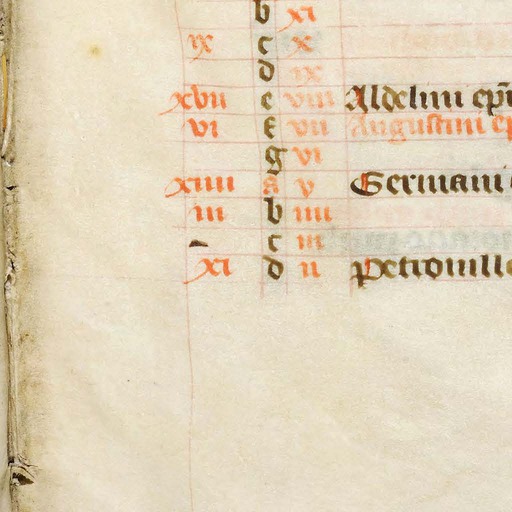 b xi
ix c x
d ix
xvii e viii Aldelmi ep̄i
vi f vii Augustini ep
g vi
xiiii a v Germani
iii b iiii
c iii
xi d ii Petronille